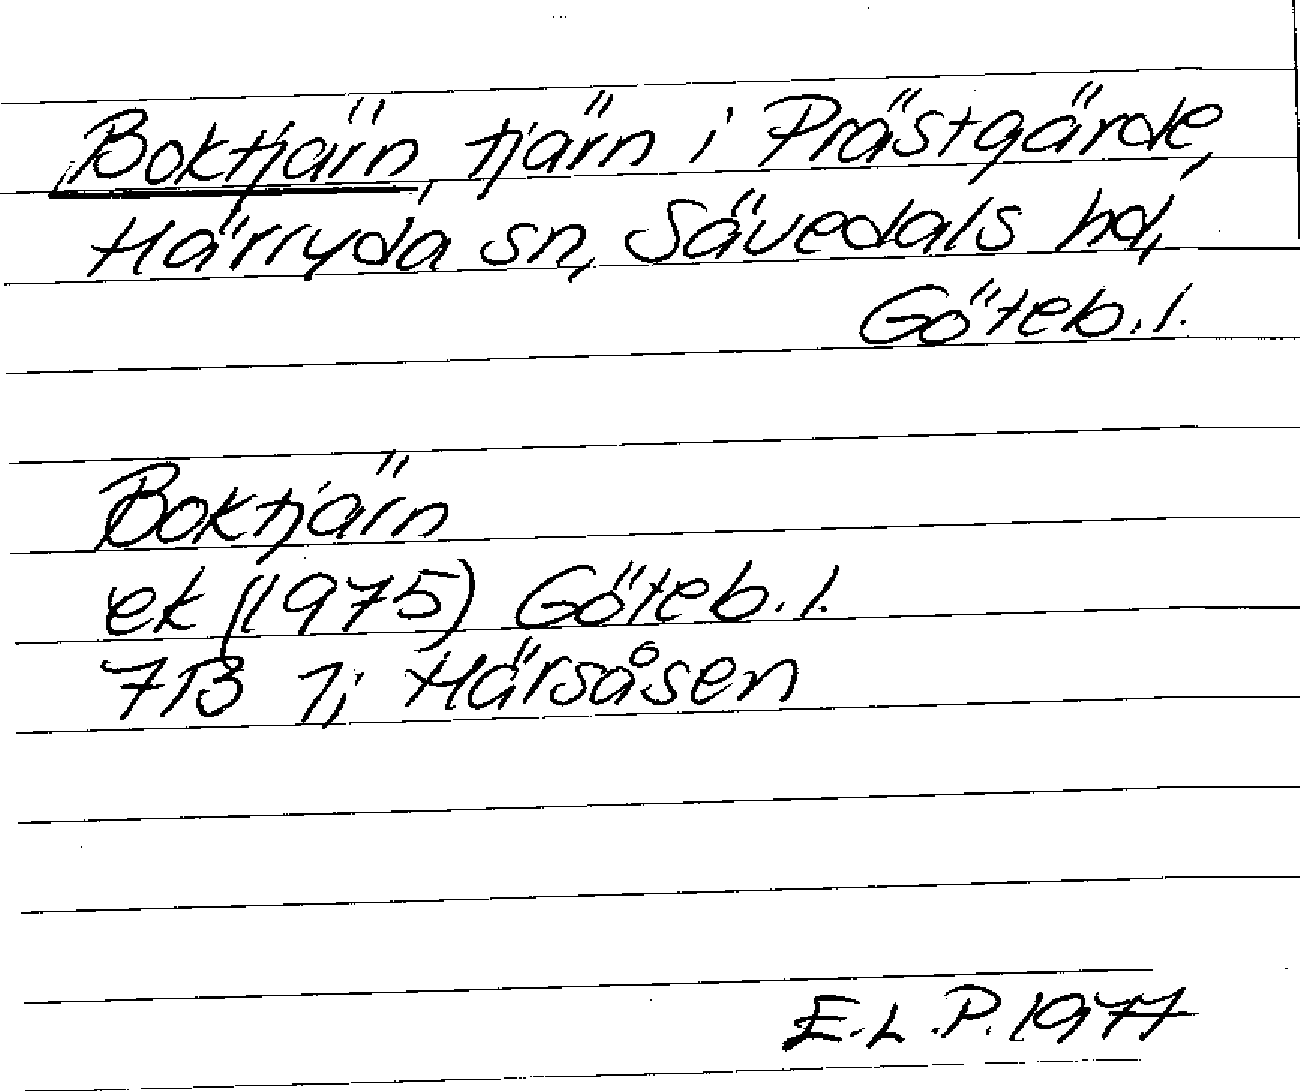 Boktjärn, tjärn i Prästgärde,
Härryda sn, Sävedals hd,
Göteb. l.
Boktjärn
ek (1975) Göteb. l.
7B 1; Härsåsen
E.L.P. 1977